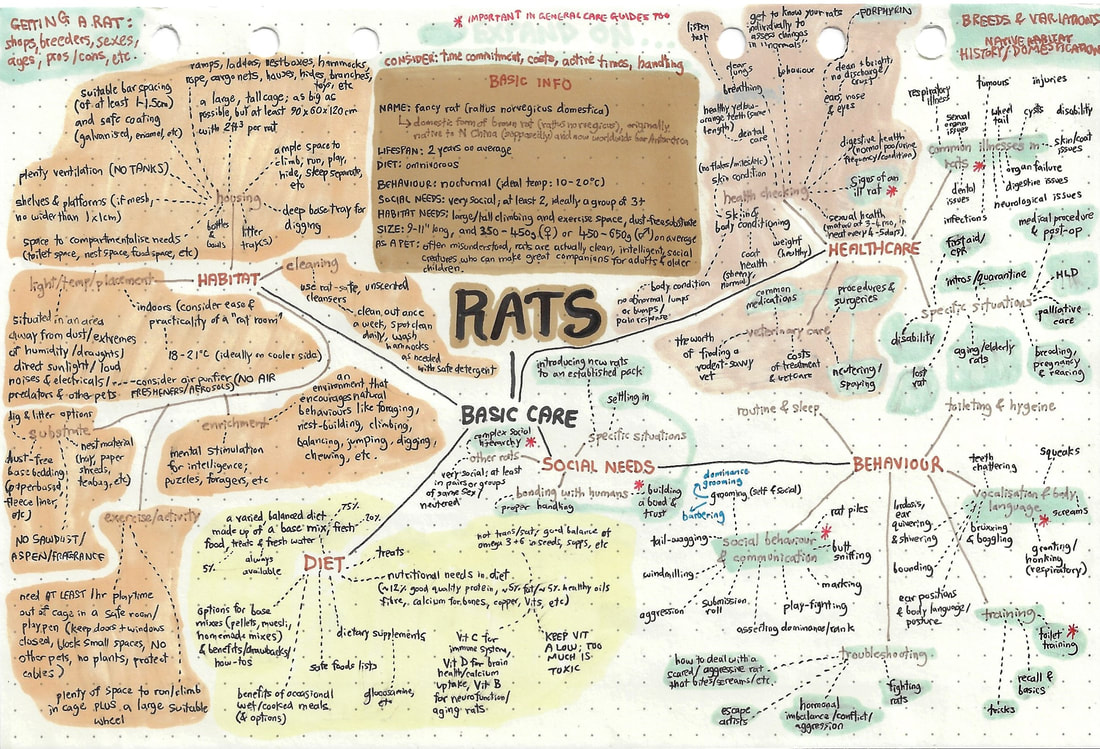 GETTING A RAT:
shops, breeders, sexes,
ages, pros/cons, etc.
* IMPORTANT IN GENERAL CARE GUIDES TOO
CONSIDER: time commitment, costs, active times, handling
BREEDS & VARIATIONS
NATIVE HABITAT
HISTORY/DOMESTICATION
BASIC INFO
NAME: fancy rat (rattus norvegicus domestica)
domestic form of brown rat (rattus norvegicus), originally
native to N China (supposedly) and now worldwide bar Antarctica
LIFESPAN: 2 years on average
DIET: omnivorous
BEHAVIOUR: nocturnal (ideal temp: 10-20°C)
SOCIAL NEEDS: very social; at least 2, ideally a group of 3+
HABITAT NEEDS: large/tall climbing and exercise space, dust-free substrate
SIZE: 9-11" long, and 350-450g (♀) or 450-650g (♂) on average
AS A PET: often misunderstood, rats are actually, clean, intelligent, social
creatures who can make great companions for adults & older
children.
RATS
BASIC CARE
HABITAT
housing
suitable bar spacing
(of at least 1-1.5cm)
and safe coating
(galvanised, enamel, etc)
ramps, ladders, nestboxes, hammocks,
rope, cargo nets, houses, hides, branches,
toys, etc
a large, tall cage; as big as
possible, but at least 90x60x120cm
with 2ft³ per rat
plenty ventilation (NO TANKS)
ample space to
climb, run, play,
hide, sleep separate,
etc
shelves & platforms (if mesh,
no wider than 1x1cm)
bottles
& bowls
litter
tray(s)
deep base tray for
digging
space to compartmentalise needs
(toilet space, nest space, food space, etc)
cleaning
use rat-safe, unscented
cleansers
clean out once
a week, spot clean
daily, wash
hammocks
as needed
with safe detergent
light/temp/placement
indoors (consider ease &
practicality of a "rat room")
situated in an area
away from dust/extremes
of humidity/draughts/
direct sunlight/loud
noises & electricals/
predators & other pets
18-21°C (ideally on cooler side)
consider air purifier (NO AIR
FRESHENERS/AEROSOLS)
substrate
dig & litter options
dust-free
base bedding
(paperbased,
fleece liner,
etc)
nest material
(hay, paper
shreds,
teabag, etc)
NO SAWDUST/
ASPEN/FRAGRANCE
enrichment
an
environment that
encourages natural
behaviours like foraging,
nest-building, climbing,
balancing, jumping, digging,
chewing, etc.
mental stimulation
for intelligence;
puzzles, foragers, etc
exercise/activity
need AT LEAST 1hr playtime
out of cage in a safe room/
playpen (keep doors + windows
closed, block small spaces, NO
other pets, no plants, protect
cables)
plenty of space to run/climb
in cage PLUS a large suitable
wheel
DIET
a varied, balanced diet
made up of a 'base' mix, fresh
food, treats & fresh water
75%
20%
5%
always
available
treats
not trans/sat; good balance of
omega 3+6 in seeds, supps, etc
nutritional needs in diet
(~12% good quality protein, ~5% fat/~5% healthy oils
fibre, calcium for bones, copper, vits, etc)
Vit C for
immune system,
Vit D for brain
health/calcium
uptake, Vit B
for neurofunction/
aging rats.
KEEP VIT
A LOW; TOO
MUCH IS
TOXIC
options for base
mixes (pellets, muesli,
homemade mixes)
& benefits/drawbacks/
how-tos
dietary supplements
glucosamine,
etc
safe foods lists
benefits of occasional
wet/cooked meals
(& options)
SOCIAL NEEDS
other rats
complex social
hierarchy *
very social; at least
in pairs or groups
of same sex/
neutered
specific situations
introducing new rats
to an established pack
settling in
bonding with humans
proper handling
* building
a bond &
trust
HEALTHCARE
health checking
listen
test
clear
lungs
breathing
get to know your rats
individually to
assess changes
in normals
behaviour
PORPHYRIN
clean & bright,
no discharge/
crust
ears, nose
& eyes
healthy yellow-
orange teeth (same
length)
dental
care
digestive health
(normal poo/urine
frequency/condition)
(no flakes/mites/etc)
skin condition
signs of an
ill rat *
skin &
body conditioning
weight
(healthy)
coat
health
(shiny,
normal)
body condition
no abnormal lumps
or bumps/
pain response
veterinary care
common
medications
procedures &
surgeries
the worth
of finding a
rodent-savvy
vet
costs
of treatment
& vet care
neutering/
spaying
common illnesses in
rats *
respiratory
illness
tumours
injuries
sexual
organ
issues
wheel
tail
cysts
disability
skin/coat
issues
organ failure
digestive issues
neurological issues
dental
issues
infections
specific situations
first aid/
CPR
medical procedure
& post-op
intros/quarantine
HLD
palliative
care
disability
lost
rat
aging/elderly
rats
breeding,
pregnancy
& rearing
BEHAVIOUR
routine & sleep
toileting & hygeine
vocalisation & body
language *
teeth
chattering
squeaks
screams
bruxxing
& boggling
grunting/
honking
(respiratory)
lordosis,
ear
quivering
& shivering
bounding
ear positions
& body language/
posture
social behaviour
& communication *
dominance
grooming
grooming (self & social)
barbering
rat piles
butt
sniffing
marking
play-fighting
asserting dominance/rank
submission
roll
aggression
windmilling
tail-wagging
troubleshooting
how to deal with a
scared/aggressive rat
that bites/screams/etc.
escape
artists
hormonal
imbalance/conflict/
aggression
fighting
rats
training
toilet *
training
recall &
basics
tricks